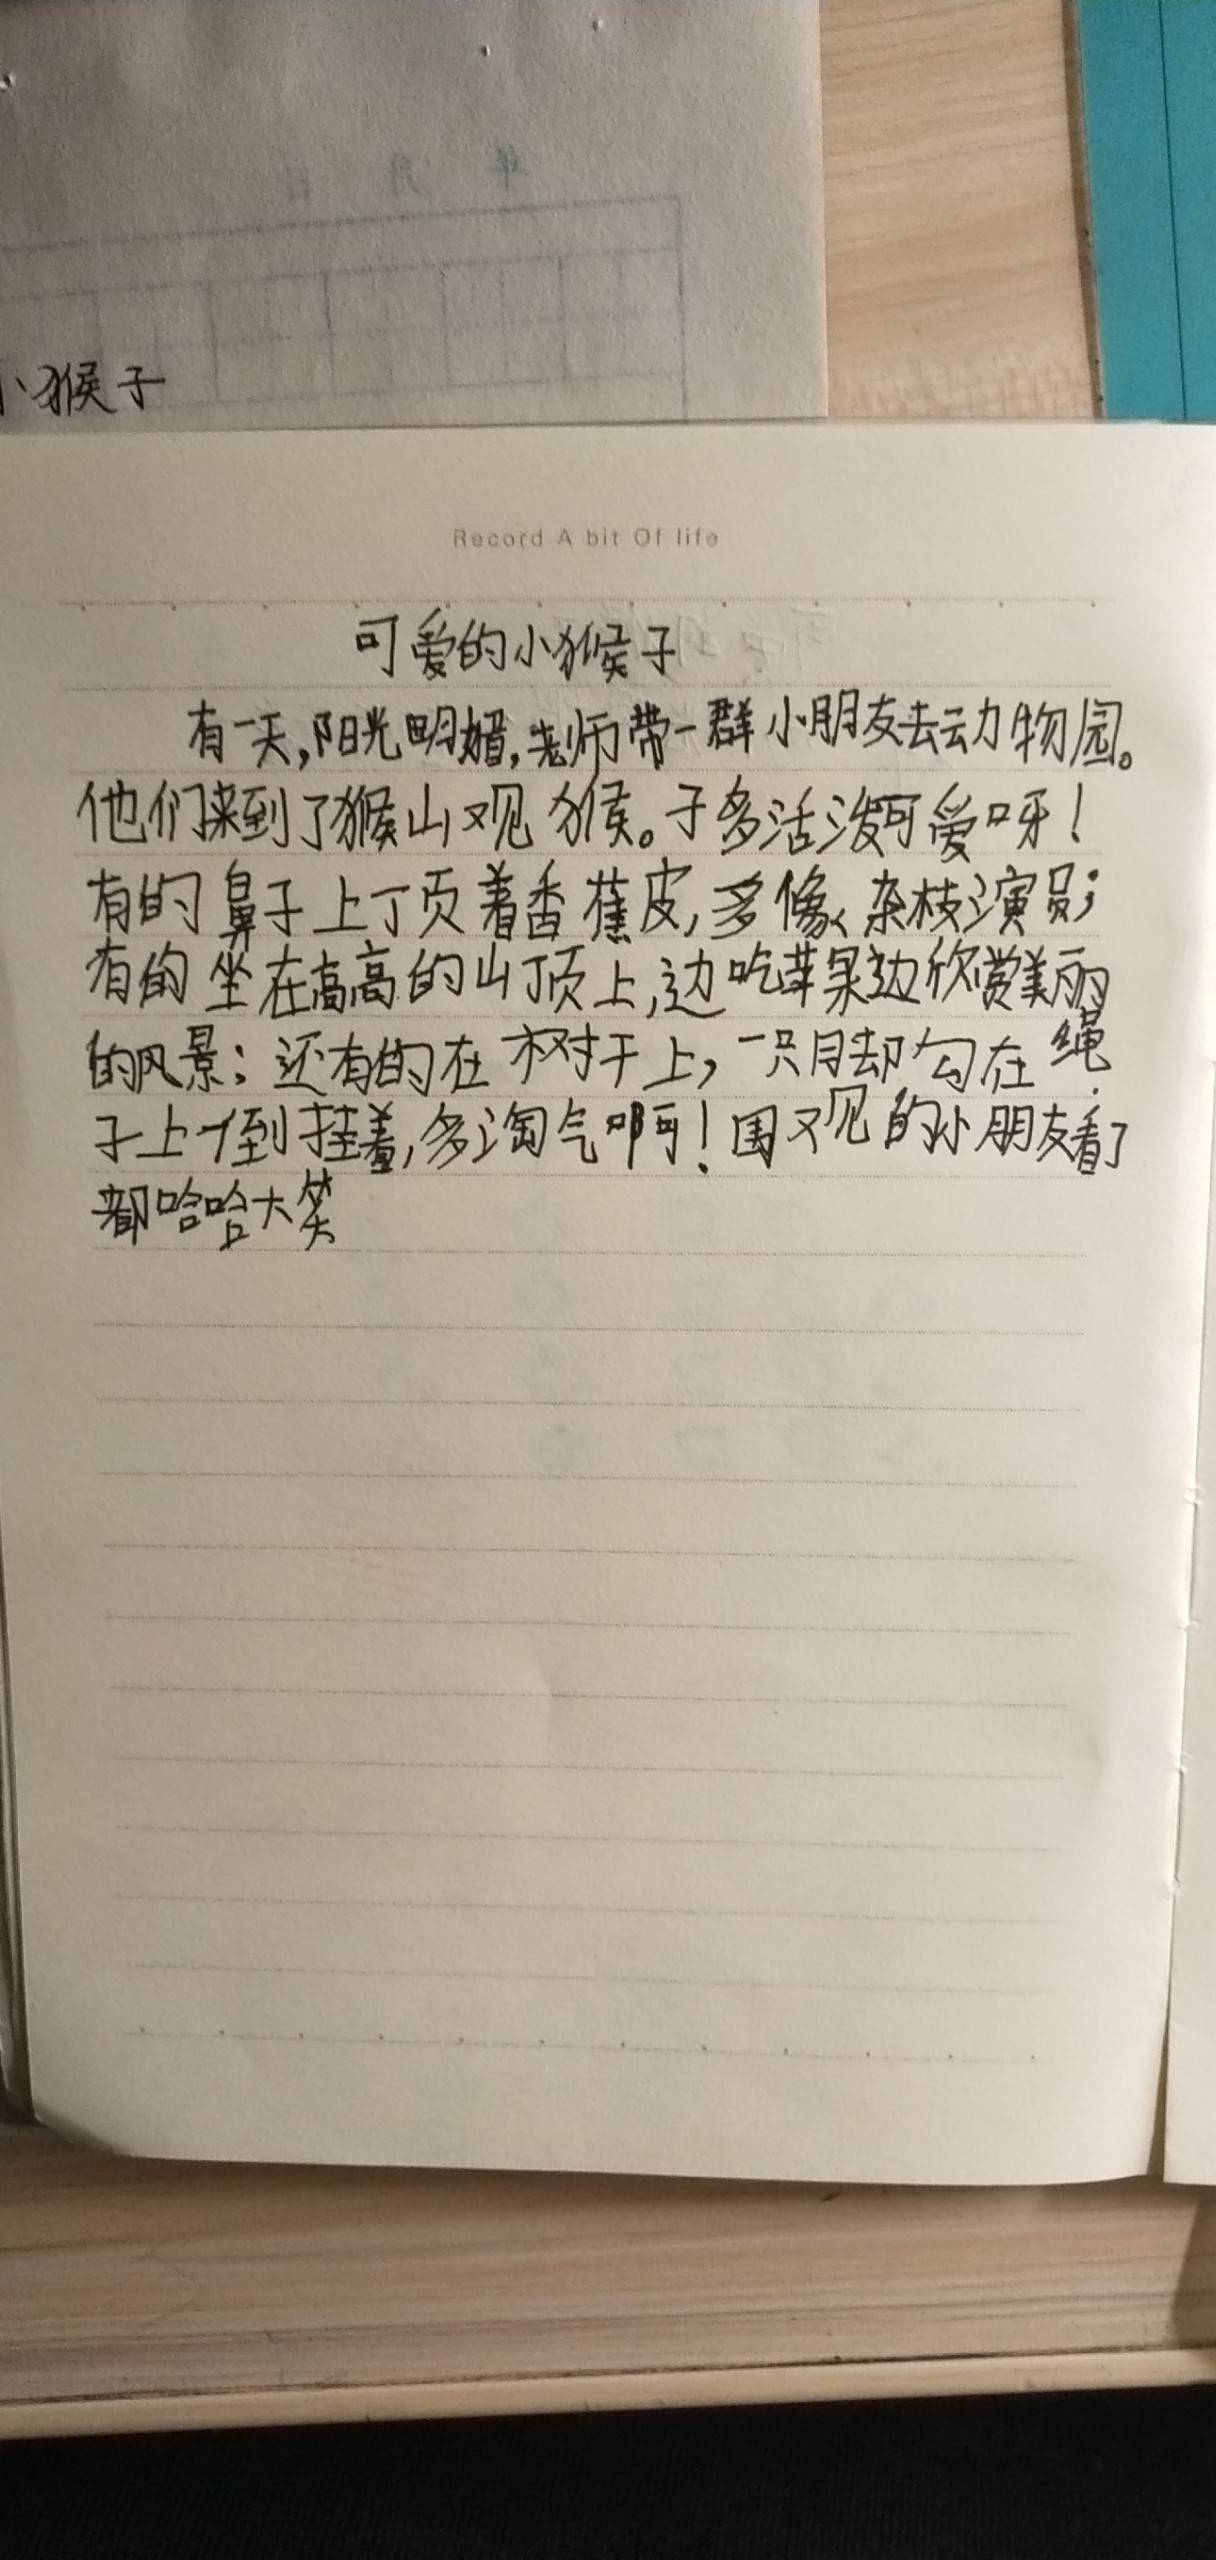 小猴子
Record A bit Of life
可爱的小猴子
有一天,阳光明媚,老师带一群小朋友去动物园。
他们来到了猴山观猴。子多活泼可爱呀！
有的鼻子上顶着香蕉皮,多像杂枝演员;
有的坐在高高的山顶上,边吃苹果边欣赏美丽
的风景;还有的在树干上,一只脚勾在绳
子上倒挂着,多淘气啊！围观的小朋友看了
都哈哈大笑